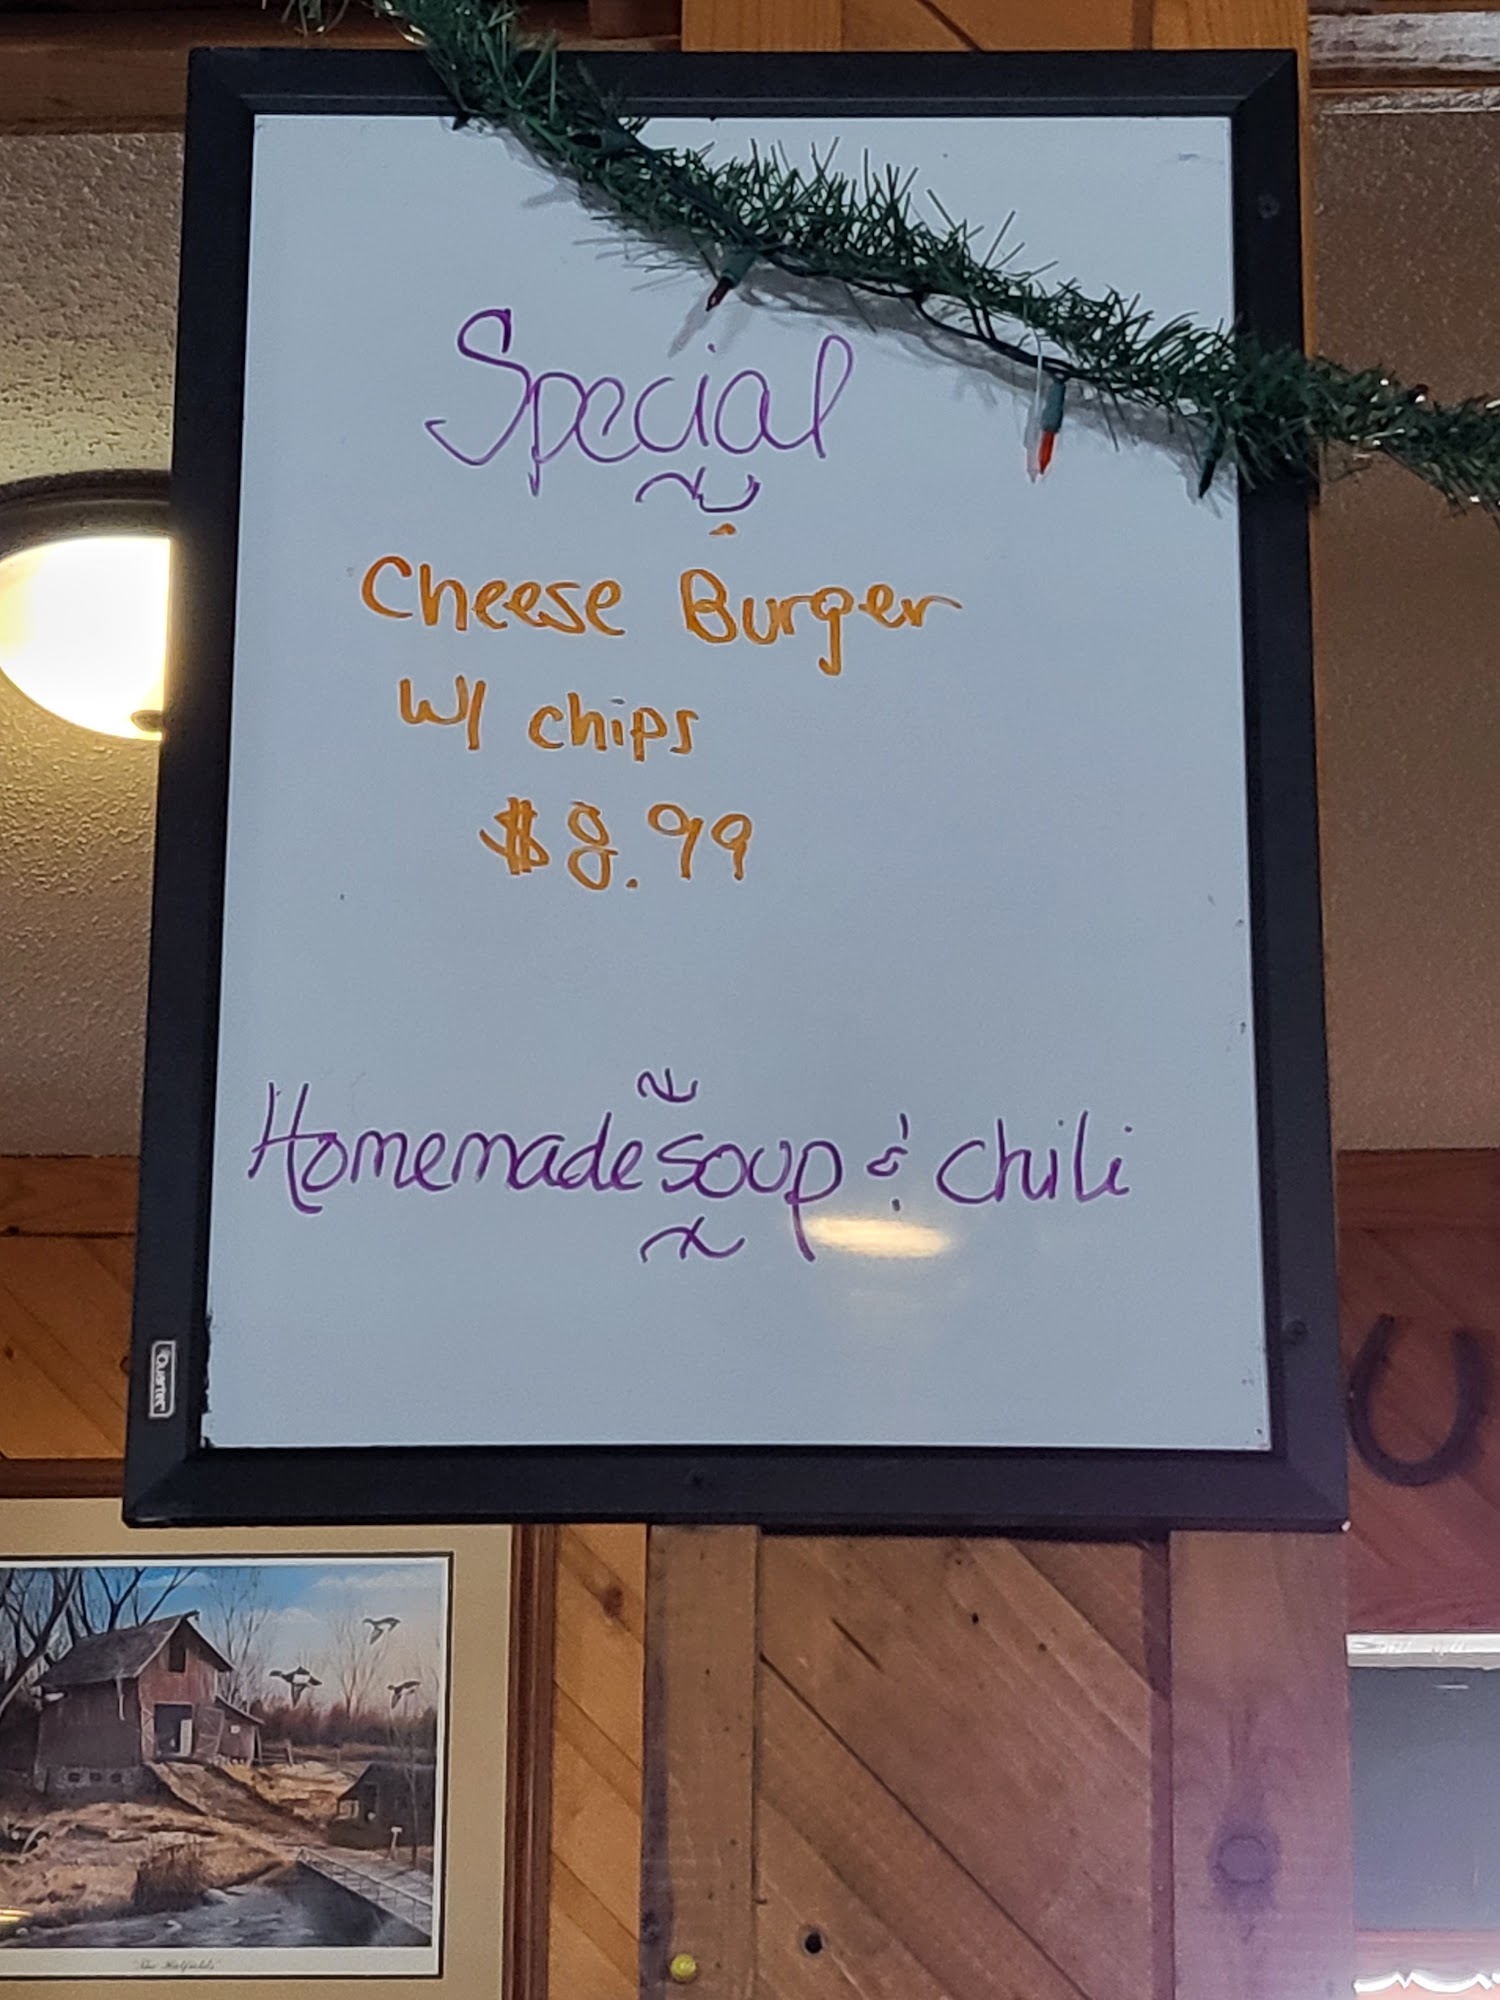 Special
Cheese Burger
W/ chips
$8.99
Homemade soup & chili
Quartet